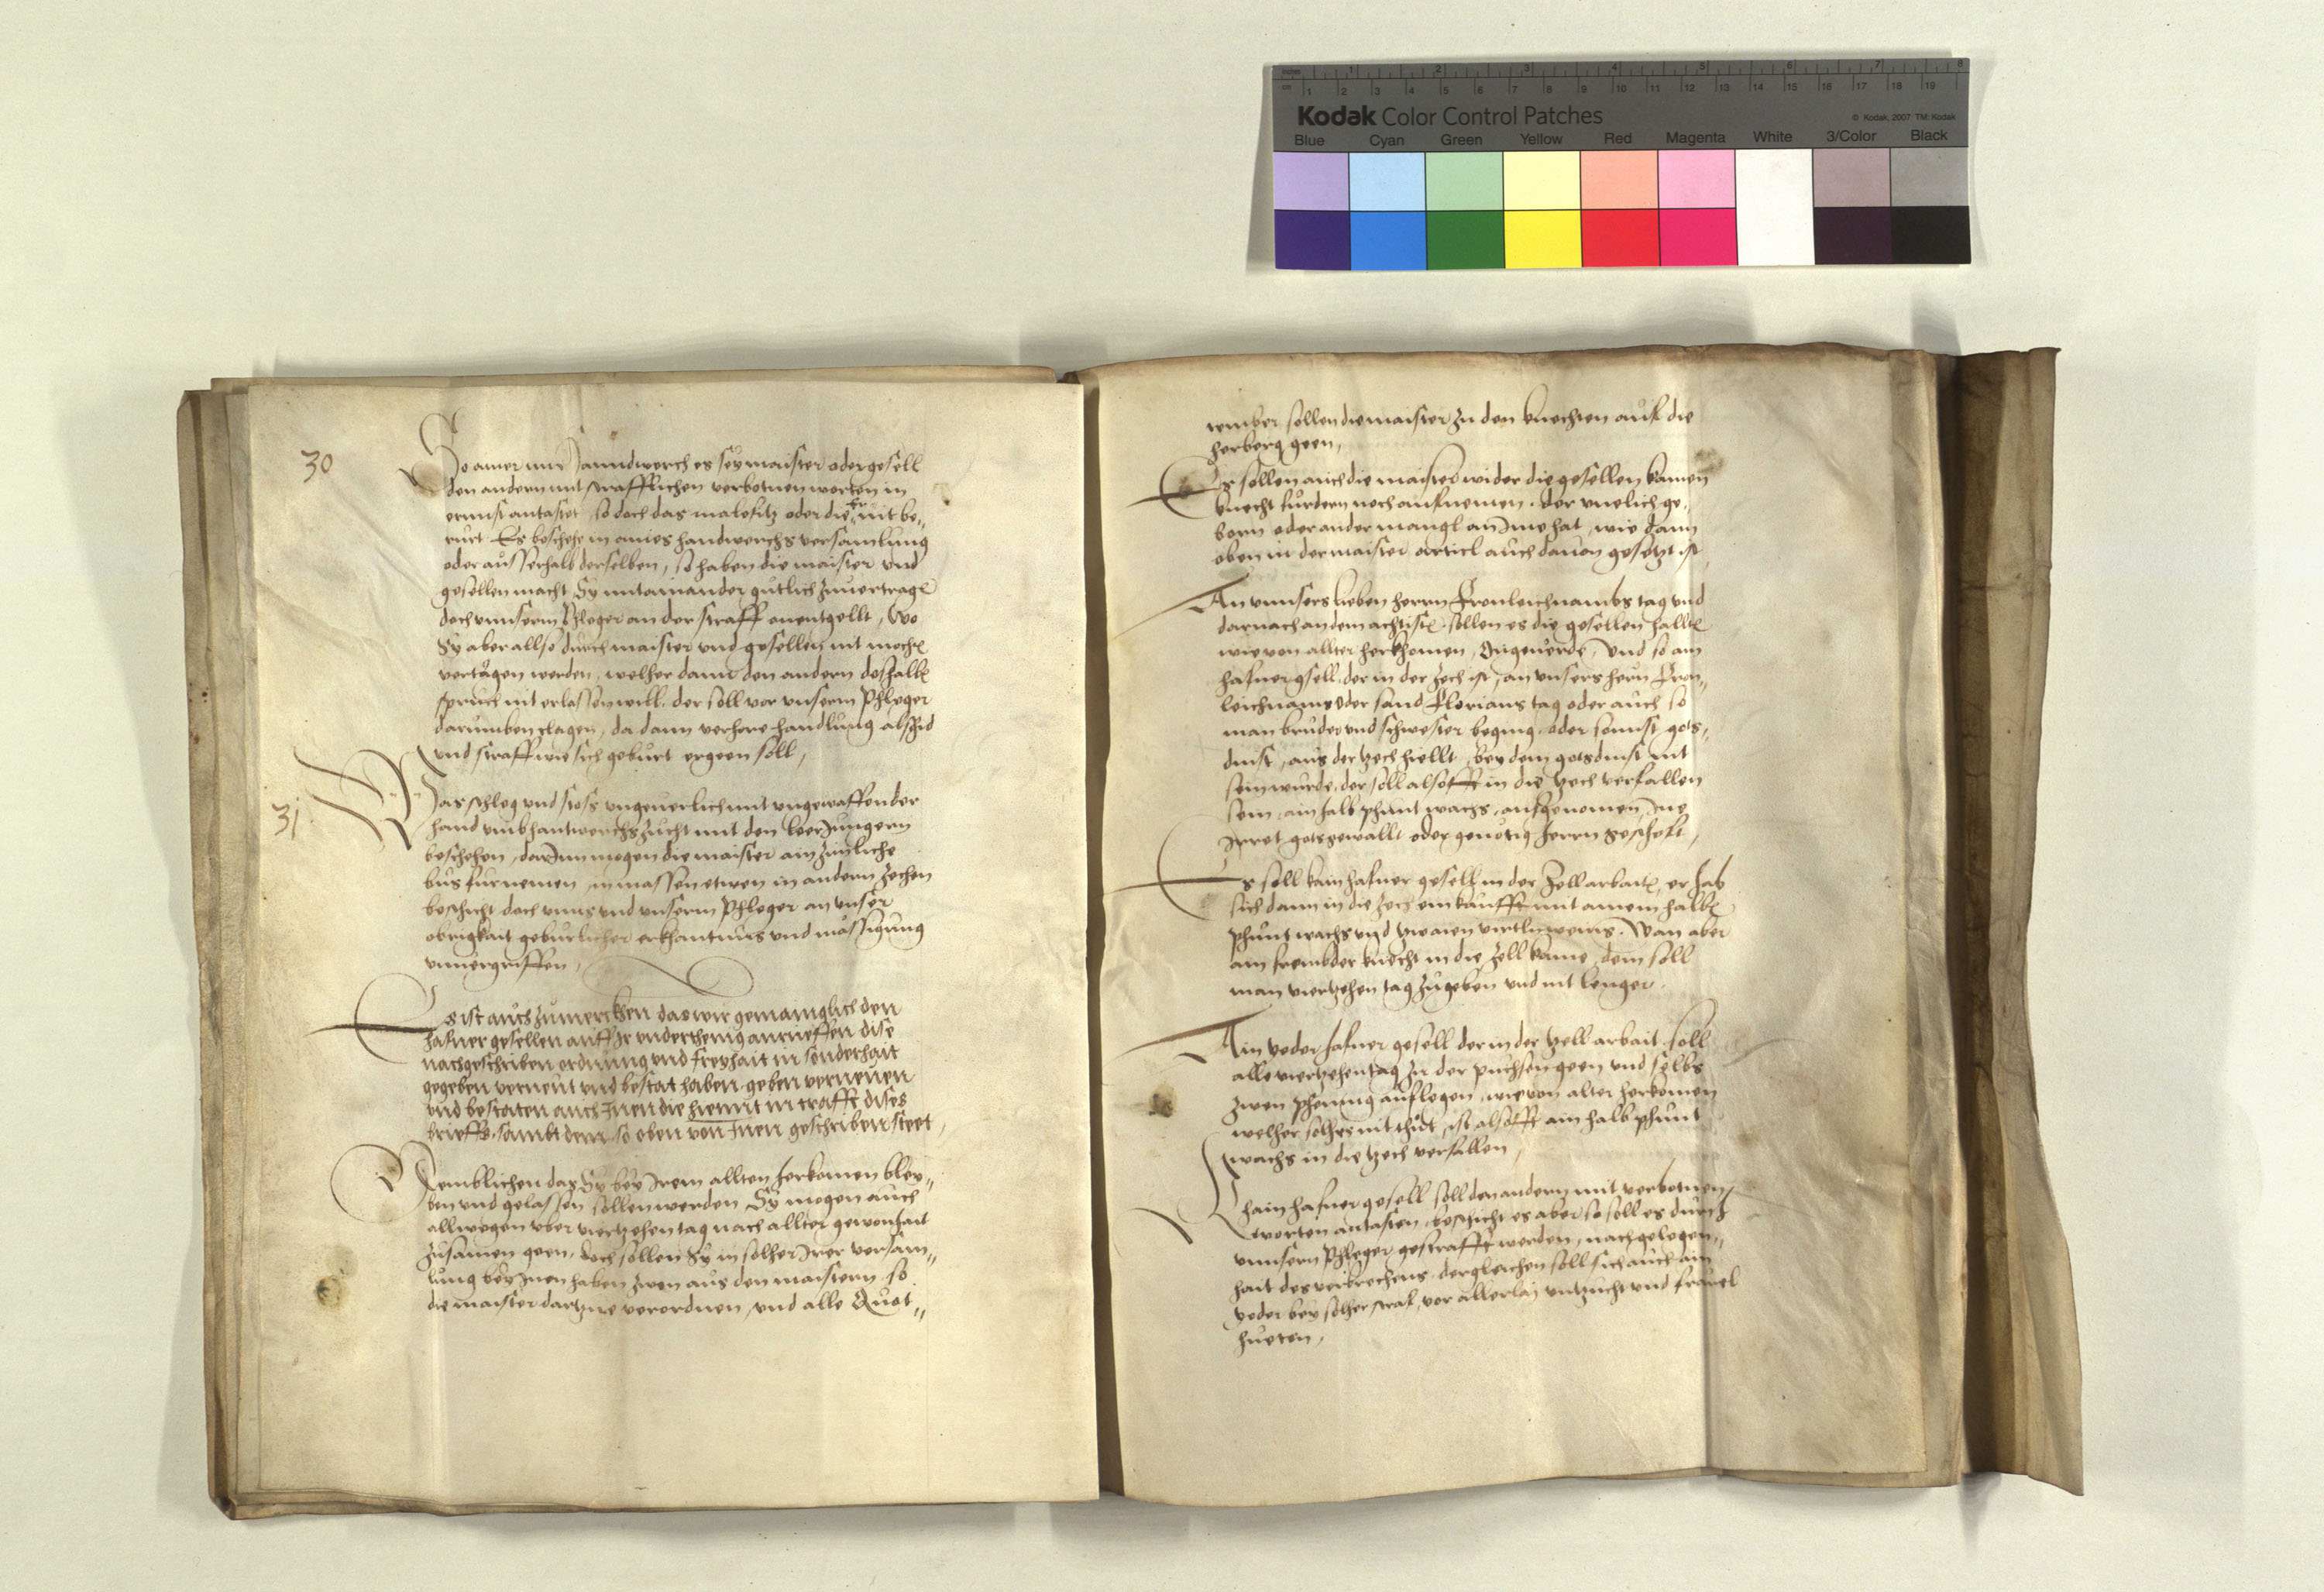 Inches 1 2 3 4 5 6 7 8
cm 1 2 3 4 5 6 7 8 9 10 11 12 13 14 15 16 17 18 19
Kodak Color Control Patches
© Kodak, 2007 TM: Kodak
Blue Cyan Green Yellow Red Magenta White 3/Color Black
30
So ainer im Hanndwerch es sey maister oder gesell
den andern mit strafflichen verbotnen worten in
ernnst antastet, so doch das malefitz oder die Er nit be„
rurt. Es beschehe in aines handwerchs versamlung
oder ausserhalb derselben, so haben die maister und
gesellen macht Sy miteinander gutlich zuuertragen
doch unnserm Phleger an der straff onentgellt, Wo
Sy aber allso durch maister und gesellen nit mochten
vertragen werden, welher dann den andern deshalben
spruch nit erlassen will, der soll vor unserm Phleger
darumben clagen, da dann verhore handlung abschid
und straff wie sich geburt ergeen soll,
31
Was schleg und stoss ungeuerlich mit ungewaffender
hand umb hantwerchs zucht mit den leerJungern
beschehen, darInn mogen die maister ain zimliche
bus furnemen, inmassen etwen in andern zechen
beschicht doch unns und unserm Phleger an unser
obrigkait geburlicher erkhantnus und mässigung
unuergriffen,
Es ist auch zumercken das wir gemainiglich den
hafner gesellen auff Ir underthenig anrueffen dise
nachgeschriben ordnung und freyhait in sonderhait
gegeben verneut und bestat haben, geben verneuen
und bestaten auch Inen die hiemit in crafft dises
brieffs, sambt dem so oben von Inen geschriben steet,
Nemblichen das Sy bey Irem allten herkomen bley„
ben und gelassen sollen werden, Sy mogen auch
allwegen uber viertzehen tag nach allter gewonhait
zusamen geen, doch sollen Sy in solher Irer versam„
lung bey Inen haben zwen aus den maistern so
die maister dartzue verordnen, und alle Quot„
tember sollen die maister zu den knechten auf die
herberg geen,
Es sollen auch die maister wider die gesellen kainen
knecht furdern noch aufnemen, der unelich ge„
born oder ander mangl an Ime hat, wie dann
oben in der maister articl auch dauon gesetzt ist
An unnsers lieben herrn Fronleichnambs tag und
darnach an dem achtisten sollen es die gesellen hallten
wie von allter herkhomen, Ongeuerde, Und so ain
hafner gsell der in der zech ist, an unsers herrn Fron„
leichnams oder sand Florians tag oder auch so
man bruder und schwester beging oder sonnst gots„
dinst, aus der tzech hiellt, bey dem gotsdinst nit
sein wurde, der soll alsofft in die tzech verfallen
sein, ain halb phunt wachs, ausgenomen Ine
Irret gotsgewallt oder genötig herrn gescheft,
Es soll kain hafner gesell in der Zell arbaiten, er hab
sich dann in die zech einkaufft mit ainem halben
phunt wachs und zwaien virtln weins. Wan aber
ain frembder knecht in die Zell kame, dem soll
man viertzehen tag zugeben und nit lenger.
Ain yeder hafner gesell der in der tzell arbait, soll
alle viertzehen tag zu der puchsen geen und selbs
zwen phening auflegen, wie von alter herkomen
welher solhes nit thut, ist alsofft ain halb phunt
wachs in die tzech verfallen,
Khain hafner gesell soll den andern mit verbotnen
worten antasten, beschicht es aber so soll es durch
unnsern Phleger gestrafft werden, nach gelegen„
hait des verbrechens, dergleichen soll sich auch ain
yeder bey solher straf, vor allerlaj unzucht und fräuel
hueten,